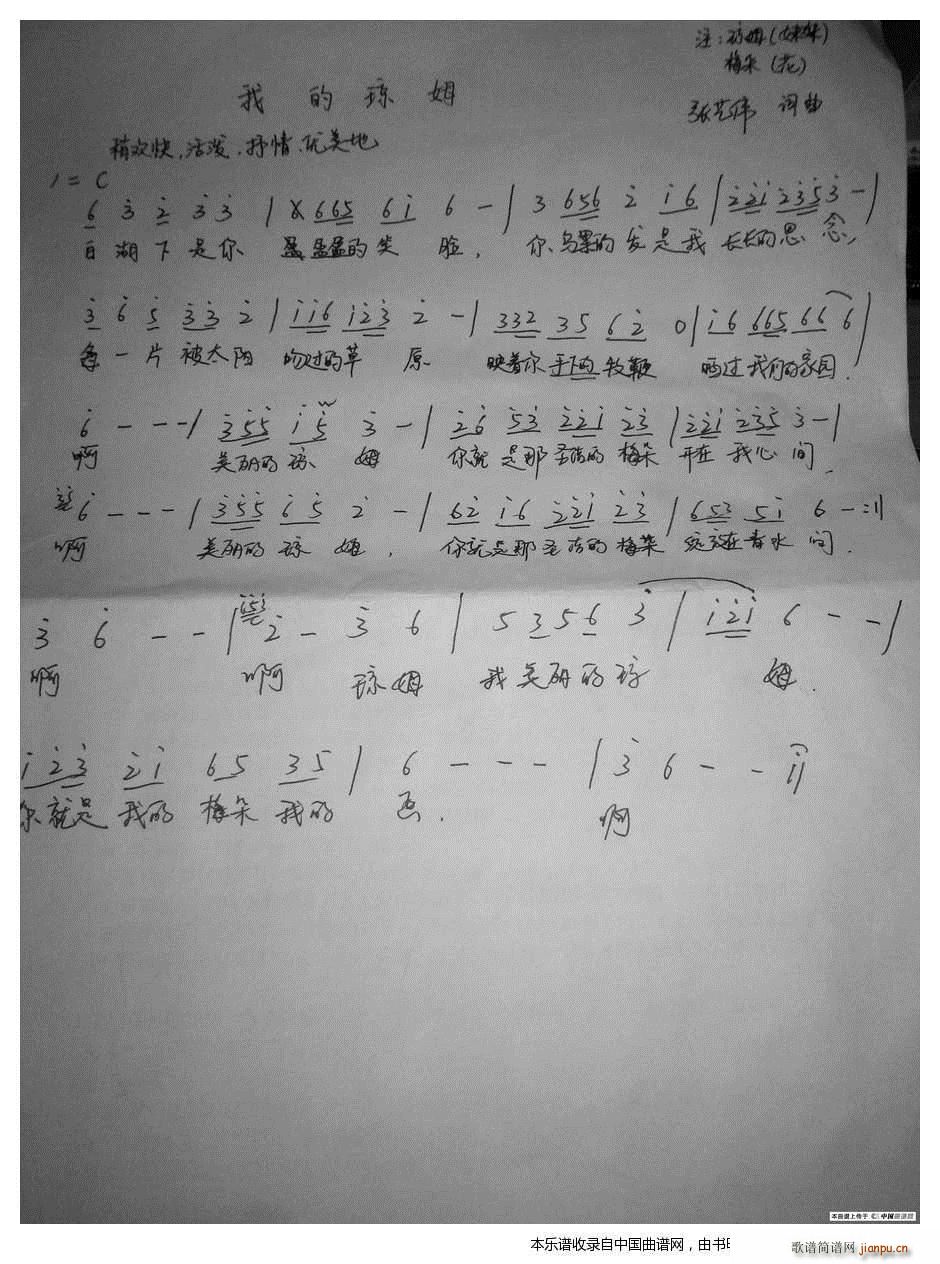 注:琼姆(妹妹)
梅朵(花)
我 的 琼 姆
张艺伟 词曲
稍欢快、活泼、抒情、优美地
1= C
6 3 2 3 3 | X 665 61 6 - | 3 656 2 1 6 | 221 235 3 - |
白湖下是你 盈盈盈的笑 脸, 你乌黑的发是我 长长的思 念,
3 6 5 3 3 2 | 116 123 2 - | 332 35 62 0 | 16 665 66 6 |
每一片被太阳 吻过的草 原 映着你手下的牧鞭 唱过我们的家园.
6 - - - | 355 15 3 - | 26 53 221 23 | 221 235 3 - |
啊 美丽的琼 姆 你就是那圣洁的梅朵 开在我心间
6 - - - | 355 65 2 - | 62 16 221 23 | 653 51 6 - :||
啊 美丽的琼 姆, 你就是那圣洁的梅朵 间.
3 6 - - | 2 - 3 6 | 5 3 5 6 3 | 121 6 - - |
啊 啊 琼姆 我美丽的琼 姆.
123 21 65 35 | 6 - - - | 3 6 - - 1||
你就是 我的 梅朵 我的 啊
本曲谱上传于 中国曲谱网
本乐谱收录自中国曲谱网,由书
歌谱简谱网 jianpu.cn